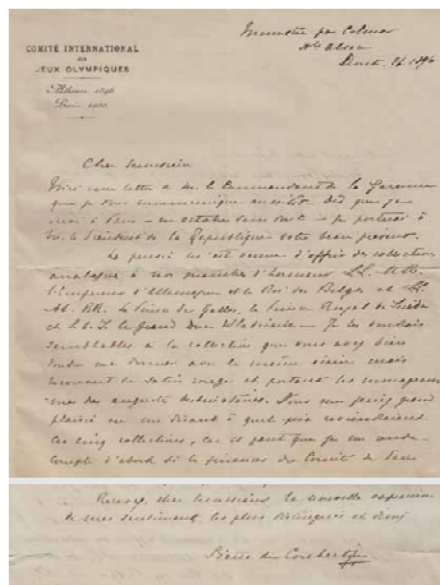 Munster par Colmar
Hte Alsace
COMITÉ INTERNATIONAL
DES
JEUX OLYMPIQUES
Athènes 1896
Paris 1900
Cher Monsieur
Voici une lettre de M. le Commandant de la Garenne
que je vous communique aussitôt. Dès que je
à Paris – en octobre sans doute – je porterai à
le Président de la République votre beau présent.
La pensée m'est venue d'offrir des collections
analogues à nos membres d'honneur LL. MM.
l'Empereur d'Allemagne et le Roi des Belges et LL.
AA. RR. le Prince de Galles, le Prince Royal de Suède
et S. A. I. le Grand Duc Wladimir. Je les voudrais
semblables à la collection que vous avez bien
voulu me donner avec le même mais
recouvert de satin rouge et portant les
des augustes destinataires. Vous me ferez grand
plaisir en me disant à quel prix reviendraient
ces cinq collections, car il faut que je me rende
compte d'abord si les finances du Comité de
Recevez, cher Monsieur, la nouvelle expression
de mes sentiments les plus distingués et
Pierre de Coubertin